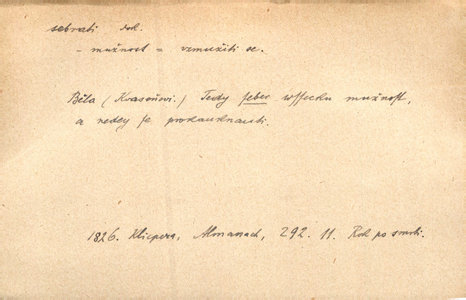 sebrati dok.
- mužnost = vzmužiti se.
Běla (Krasoňovi.) Tedy seber wssecku mužnost,
a nedey se prokauknauti.
1826. Klicpera, Almanach, 292. 11. Rok po smrti.